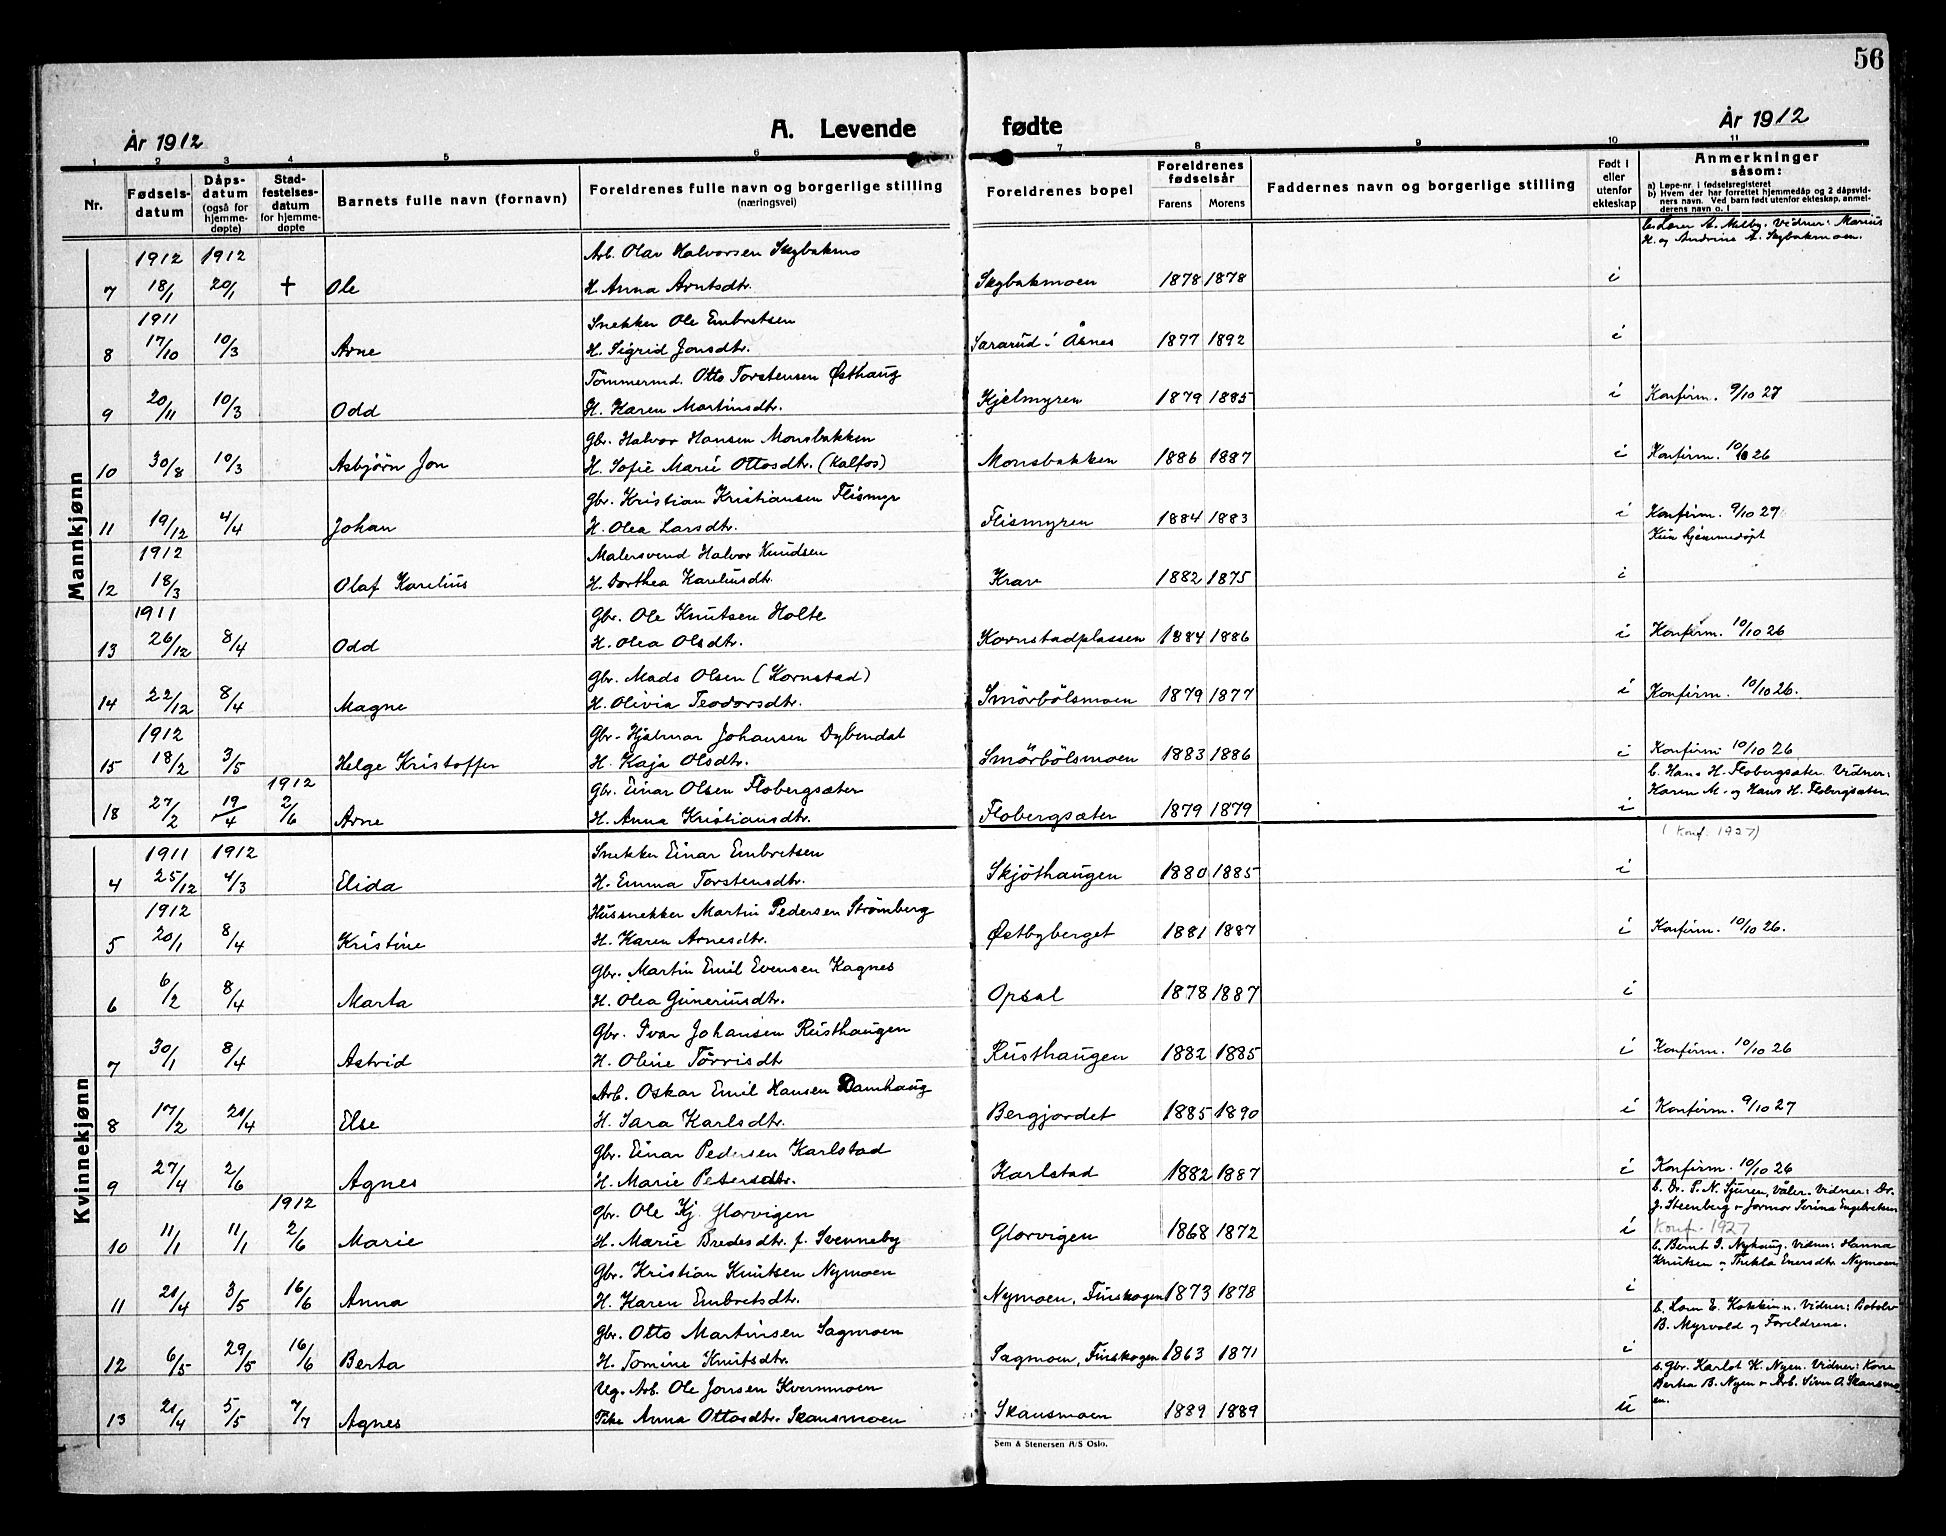 56
År 1912
A. Levende fødte
År 1912
1 2 3 4 5 6 7 8 9 10 11
Nr.
Fødselsdatum
Dåpsdatum (også for hjemmedøpte)
Stadfestelsesdatum for hjemmedøpte
Barnets fulle navn (fornavn)
Foreldrenes fulle navn og borgerlige stilling (næringsvei)
Foreldrenes bopel
Foreldrenes fødselsår
Farens Morens
Faddernes navn og borgerlige stilling
Født i eller utenfor ekteskap
Anmerkninger såsom:
a) Løpe-nr. i fødselsregisteret
b) Hvem der har forrettet hjemmedåp og 2 dåpsvidners navn. Ved barn født utenfor ekteskap, anmelderens navn o. l
Mannkjønn
b. Lærer A. Melby. Vidner: Marius
H. og Andrine A. Skybakmoen.
1912 1912 Arb. Olav Halvorsen Skybakmo
7 18/1 20/1 + Ole H. Anna Arntsdtr. Skybakmoen 1878 1878 i
1911 Snekker Ole Embretsen
8 17/10 10/3 Arne H. Sigrid Jonsdtr. Sararud i Åsnes 1877 1892 i
Tömmermd. Otto Torstensen Østhaug
9 20/11 10/3 Odd H. Karen Martinsdtr. Kjelmyren 1879 1885 i Konfirm. 9/10 27
Gbr. Halvor Hansen Monsbakken
10 30/8 10/3 Asbjørn Jon H. Sofie Marie Ottosdtr. (Kalfos) Monsbakken 1886 1887 i Konfirm. 10/10 26
Gbr. Kristian Kristiansen Flismyr
11 19/12 4/4 Johan H. Olea Larsdtr. Flismyren 1884 1883 i Konfirm. 9/10 27
1912 Malersvend Halvor Knudsen Kun hjemmedøpt
12 18/3 Olaf Karelius H. Dorthea Kareliusdt. Krav 1882 1875 i
1911 Gbr. Ole Knutsen Holte
13 26/12 8/4 Odd H. Olea Olsdtr. Kornstadplassen 1884 1886 i Konfirm. 10/10 26
Gbr. Mads Olsen (Kornstad)
14 22/12 8/4 Magne H. Olivia Teodorsdtr. Smörbölsmoen 1879 1877 i Konfirm. 10/10 26.
1912 Gbr. Hjalmar Johansen Dybendal
15 18/2 3/5 Helge Kristoffer H. Kaja Olsdtr. Smörbölsmoen 1883 1886 i Konfirm 10/10 26
1912 Gbr. Einar Olsen Flobergsæter b. Hans H. Flobergsæter. Vidner:
18 27/2 19/4 2/6 Arne H. Anna Kristiansdtr. Flobergsæter 1879 1879 i Karen M. og Hans H. Flobergsæter.
(Konf. 1927)
Kvinnekjønn
1911 1912 Snekker Einar Embretsen
4 25/12 4/3 Elida H. Emma Torstensdtr. Skjöthaugen 1880 1885 i
1912 Hussnekker Martin Pedersen Strømberg
5 20/1 8/4 Kristine H. Karen Arnesdtr. Østbyberget 1881 1887 i Konfirm. 10/10 26.
Gbr. Martin Emil Evensen Kagnes
6 6/2 8/4 Marta H. Olea Guneriusdtr. Opsal 1878 1887 i
Gbr. Ivar Johansen Rusthaugen
7 30/1 8/4 Astrid H. Oline Törrisdt Rusthaugen 1882 1885 i Konfirm. 10/10 26
Arb. Oskar Emil Hansen Damhaug
8 17/2 21/4 Else H. Sara Karlsdtr. Bergjordet 1885 1890 i Konfirm. 9/10 27
Gbr. Einar Pedersen Karlstad
9 27/4 2/6 Agnes H. Marie Petersdtr. Karlstad 1882 1887 i Konfirm. 10/10 26
1912 Gbr. Ole Kj. Glorvigen b. Dr. P. N. Sjuren, Våler. Vidner: Dr.
J. Steenberg + Jormor Terina Engebretsen
10 11/1 11/1 2/6 Marie H. Marie Bredesdtr. f. Svenneby Glorvigen 1868 1872 i Konf. 1927
Gbr. Kristian Knutsen Nymoen b. Bernt J. Nyhaug. Vidner: Hanna
Knutsen og Thekla Enersdtr Nymoen
11 21/4 3/5 16/6 Anna H. Karen Embretsdtr. Nymoen, Finskogen 1873 1878 i
Gbr. Otto Martinsen Sagmoen b. Lars E. Kokkin n. Vidner:
B. Myrvold og Foreldrene.
12 6/5 29/5 16/6 Berta H. Tomine Knutsdtr. Sagmoen, Finskogen 1863 1871 i
Ug. Arb. Ole Jonsen Kvernmoen b. Gbr. Karlot H. Nyen. Vidner: Kone
Bertea B. Nyen + Arb. Simen A. Skansmoen.
13 21/4 5/5 7/7 Agnes Pike Anna Ottosdtr. Skansmoen Skansmoen 1889 1889 u
Sem & Stenersen A/S Oslo.